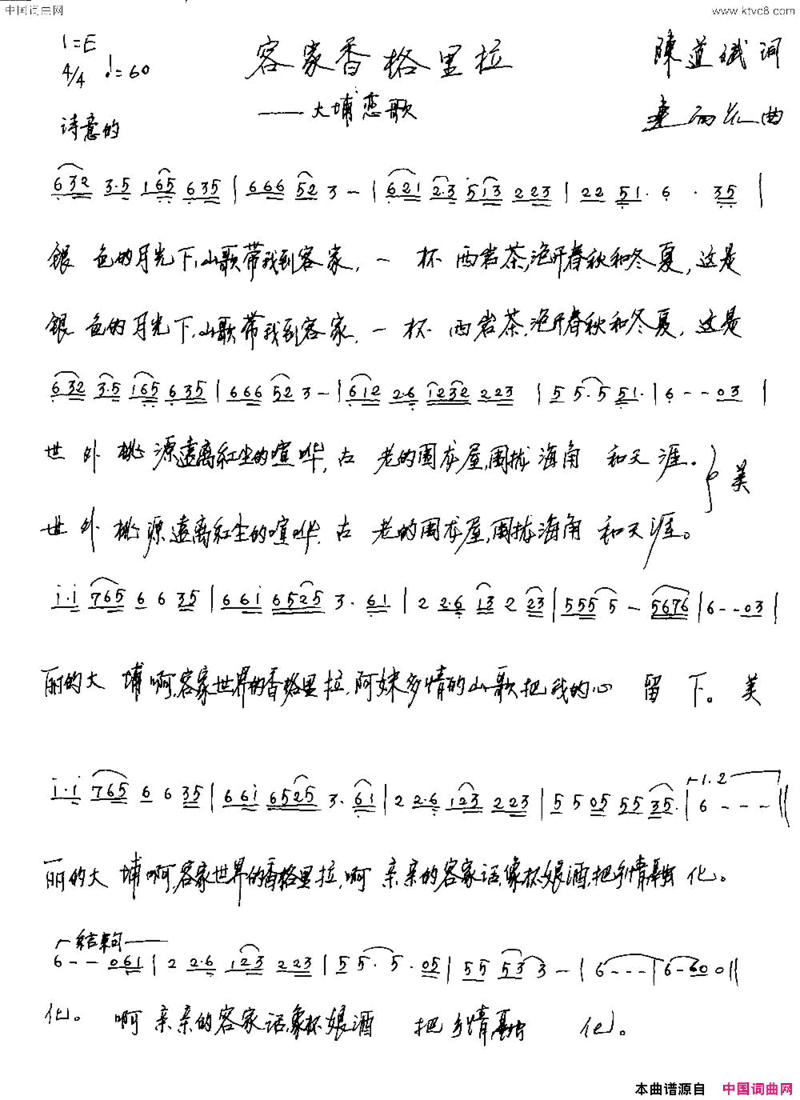 中国词曲网
www.ktvc8.com
1=E
4/4 ♩=60
客家香格里拉
——大埔恋歌
陳道斌 词
曲
诗意的
6 3 2 3·5 1 6 5 6 3 5 | 6 6 6 5 2 3 – | 6 2 1 2·3 5 1 3 2 2 3 | 2 2 5 1· 6 · 3 5 |
银 色的月光下,山歌带我到客家,一 杯 西岩茶,泡开春秋和冬夏,这是
银 色的月光下,山歌带我到客家,一 杯 西岩茶,泡开春秋和冬夏,这是
6 3 2 3·5 1 6 5 6 3 5 | 6 6 6 5 2 3 – | 6 1 2 2·6 1 2 3 2 2 2 3 | 5 5·5 5 1· | 6 – – 0 3 |
世 外 桃 源遠离紅尘的喧哗,古 老的围龙屋,围拢海角 和天涯。} 美
世 外 桃源遠离紅尘的喧哗,古 老的围龙屋,围拢海角 和天涯。
i·i 7 6 5 6 6 3 5 | 6 6 i 6 5 2 5 3· 6 1 | 2 2·6 1 3 2 2 3 | 5 5 5 5 – 5 6 7 6 | 6 – – 0 3 |
丽的大 埔啊,客家世界的香格里拉,阿妹多情的山歌把我的心 留 下。美
i·i 7 6 5 6 6 3 5 | 6 6 i 6 5 2 5 3· 6 1 | 2 2·6 1 2 3 2 2 3 | 5 5 0 5 5 5 3 5· | 1.2 6 – – – ‖
丽的大 埔啊,客家世界的香格里拉,啊 亲亲的客家话,像杯娘酒,把乡情融 化。
结束句
6 – – 0 6 1 | 2 2·6 1 2 3 2 2 3 | 5 5· 5· 0 5 | 5 5 5 3 3 – | 6 – – – | 6 – 6 0 0 ‖
化。 啊 亲亲的客家话,象杯娘酒 把 乡情融 化。
本曲谱源自 中国词曲网